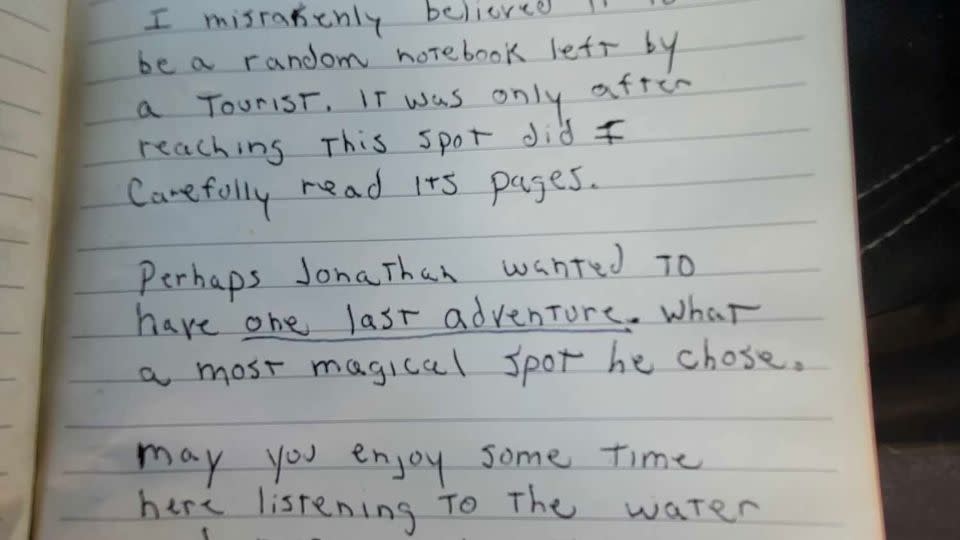 I mistakenly believed it to
be a random notebook left by
a Tourist. It was only after
reaching This spot did I
Carefully read its pages.
Perhaps Jonathan wanted To
have one last adventure. What
a most magical spot he chose.
may you enjoy some Time
here listening To The water